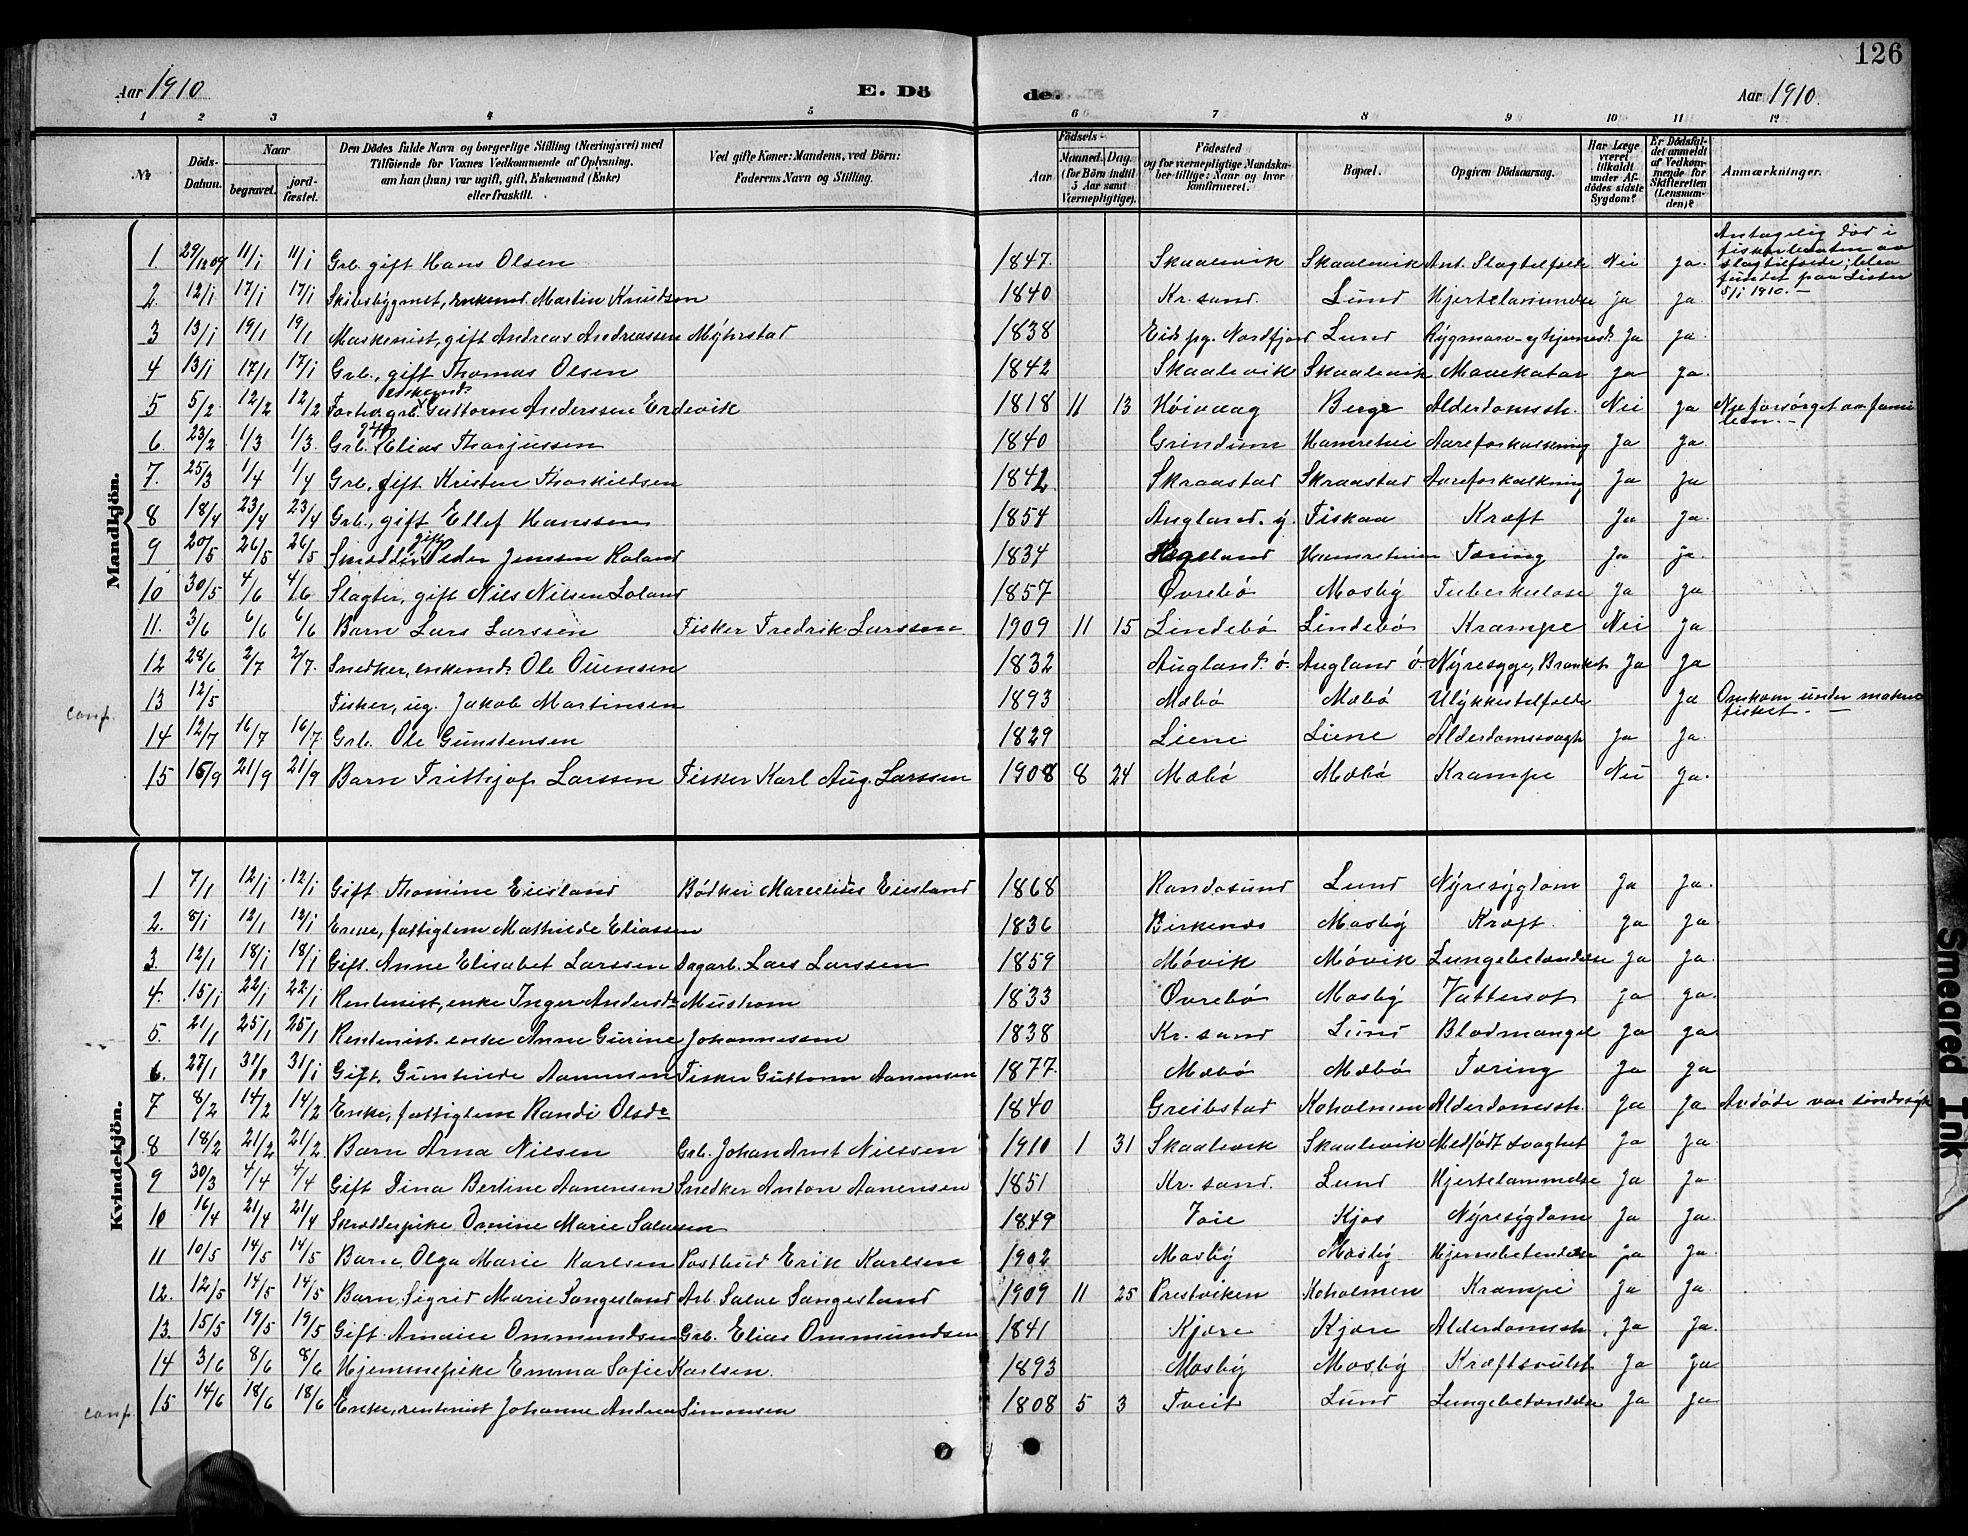 126
Aar 1910 E. Dö de. Aar 1910.
1 2 3 4 5 6 7 8 9 10 11 12
№ Döds-Datum. Naar begravet. jord-fæstet. Den Dödes fulde Navn og borgerlige Stilling (Næringsvei) med Tilföiende for Voxnes Vedkommende af Oplysning, om han (hun) var ugift, gift, Enkemand (Enke) eller fraskilt. Ved gifte Koner: Mandens, ved Börn: Faderens Navn og Stilling. Födsels- Aar Maaned. Dag. (for Börn indtil 5 Aar samt Værnepligtige). Födested og for værnepligtige Mandska-ber tillige: Naar og hvor konfirmeret. Bopæl. Opgiven Dödsaarsag. Har Læge været tilkaldt under Af-dödes sidste Sygdom? Er Dödsfal-det anmeldt af Vedkom-mende for Skifteretten (Lensman-den)? Anmærkninger.
Mandkjön.
1. 29/12 09 11/1 11/1 Grb. gift Hans Olsen 1847. Skaalevik Skaalevik Ant. Slagtilfælde Nei ja. Antagelig död i fiskerbaaten av slagtilfælde; blev fundet paa Lister 5/1 1910.
2. 12/1 17/1 17/1 Skibsbygmst, enkemd. Martin Knudsen 1840 Kr. sand. Lund Hjertelammelse ja ja.
3 13/1 19/1 19/1 Maskenist, gift Andreas Andreassen Mýhrstad 1838 Eid pg. Nordfjord Lund Rýgmarv- og hjernesd. Ja ja.
4 13/1 17/1 17/1 Grb., gift Thomas Olsen 1842 Skaalevik Skaalevik Mavekatar ja ja.
5 5/2 12/2 12/2 Forhv. grb. enkemd. Guttorm Anderssen Erdevik 1818 11 13 Höivaag Berge Alderdomssv. Nei ja Nöe forsörget av fami lien.
6 23/2 1/3 1/3. Grb. gift Elias Thorjussen 1840 Grindum Hamretui Aareforkalkning Ja ja.
7. 25/3 1/4 1/4 Grb., gift Kristen Thorkildsen 1842. Skraastad Skraastad Aareforkalkning Ja ja
8 18/4 23/4 23/4 Grb., gift Ellef Hanssen 1854 Augland. ý. Fiskaa Kræft Ja ja.
9 20/5 26/5 26/5 Snedder gift Peder Jenssen Roland 1834 Hægeland Hamretuien Tæring Ja ja.
10 30/5 4/6 4/6 Slagter, gift Nils Nilsen Loland 1857 Övrebö Mosbý Tuberkulose Ja ja
11. 3/6 6/6 6/6 Barn Lars Larssen Fisker Fredrik Larssen 1909 11 15 Lindebö Lindebö Krampe Nei ja
12 28/6 2/7 2/7. Snedker, enkemd. Ole Ouensen 1832 Augland. ö. Augland ö. Nýresyge, Bronkit Ja Ja
13 12/5 Fisker, ug. Jakob Martinsen 1893 Mæbö Mæbö Ulýkkestilfælde Ja Omkom under makrel fisket.
conf.
14 12/7 16/7 16/7 Grb. Ole Gunstensen 1829 Liene Liene Alderdomssvagh Ja Ja.
15 15/9 21/9 21/9 Barn Frithjof Larssen Fisker Karl Aug. Larssen 1908 8 24 Mæbö Mæbö Krampe Nei ja.
Kvindekjön.
1 7/1 12/1 12/1 Gift Thomine Eiesland Bödker Marcelius Eiesland 1868 Randosund Lund Nýresýgdom Ja Ja.
2. 8/1 12/1 12/1 Enke, fattiglem Mathilde Eliassen 1836 Birkenæs Mosbý Kræft. ja ja
3. 12/1 18/1 18/1 Gift. Anne Elisabet Larssen Dagarb. Lars Larssen 1859 Mövik Mövik Lungebetændelse Ja Ja.
4. 15/1 22/1 22/1 Rentenist, enke Inger Andersdr Mustrom 1833 Övrebö Mosbý Vattersot ja ja.
5. 21/1 25/1 25/1 Rentenist. enke Anne Gurine Johannesen 1838 Kr. sand Lund Blodmangel Ja ja
6. 27/1 31/1 31/1 Gift. Gunhilde Aanensen Fisker Guttorm Aanensen 1877 Mæbö Mæbö Tæring Ja ja
7 8/2 14/2 14/2 Enke, fattiglem Randi Olsdr 1840 Greibstad Koholmen Alderdomssv. Ja ja Avdöde var sindssýk
8 18/2 21/2 21/2 Barn Arna Nilsen Grb. Johan Arnt Nilssen 1910 1 31 Skaalevik Skaalevik Medfödt svaghet Ja Ja
9 30/3 4/4 4/4 Gift Dina Bertine Aanensen Snedker Anton Aanensen 1851 Kr. sand. Lund Hjertelammelse Ja Ja.
10 16/4 21/4 21/4 Skrædderpike Omine Marie Salvesen 1849 Voie Kjos Nýresýgdom Ja Ja.
11 10/5 14/5 14/5 Barn, Olga Marie Karlsen Postbud Erik Karlsen 1902 Mosbý Mosbý Hjernebetændelse ja Ja.
12. 12/5 14/5 14/5 Barn, Sigrid Marie Sangesland Arb. Salve Sangesland 1909 11 25 Prestviken Koholmen Krampe Ja Ja.
13. 15/5 19/5 19/5 Gift Amalie Ommundsen Grb. Elias Ommundsen 1841 Kjære Kjære Alderdomssv. Ja Ja.
14 3/6 8/6 8/6 Hjemmepike Emma Sofie Karlsen. 1893 Mosbý Mosbý Kræftsvulst Ja ja
conf. 15 14/6 18/6 18/6 Enke, rentenist Johanne Andrea Simonsen 1808 5 3 Tveit Lund Lungebetændelse Ja Ja
Smeared Ink